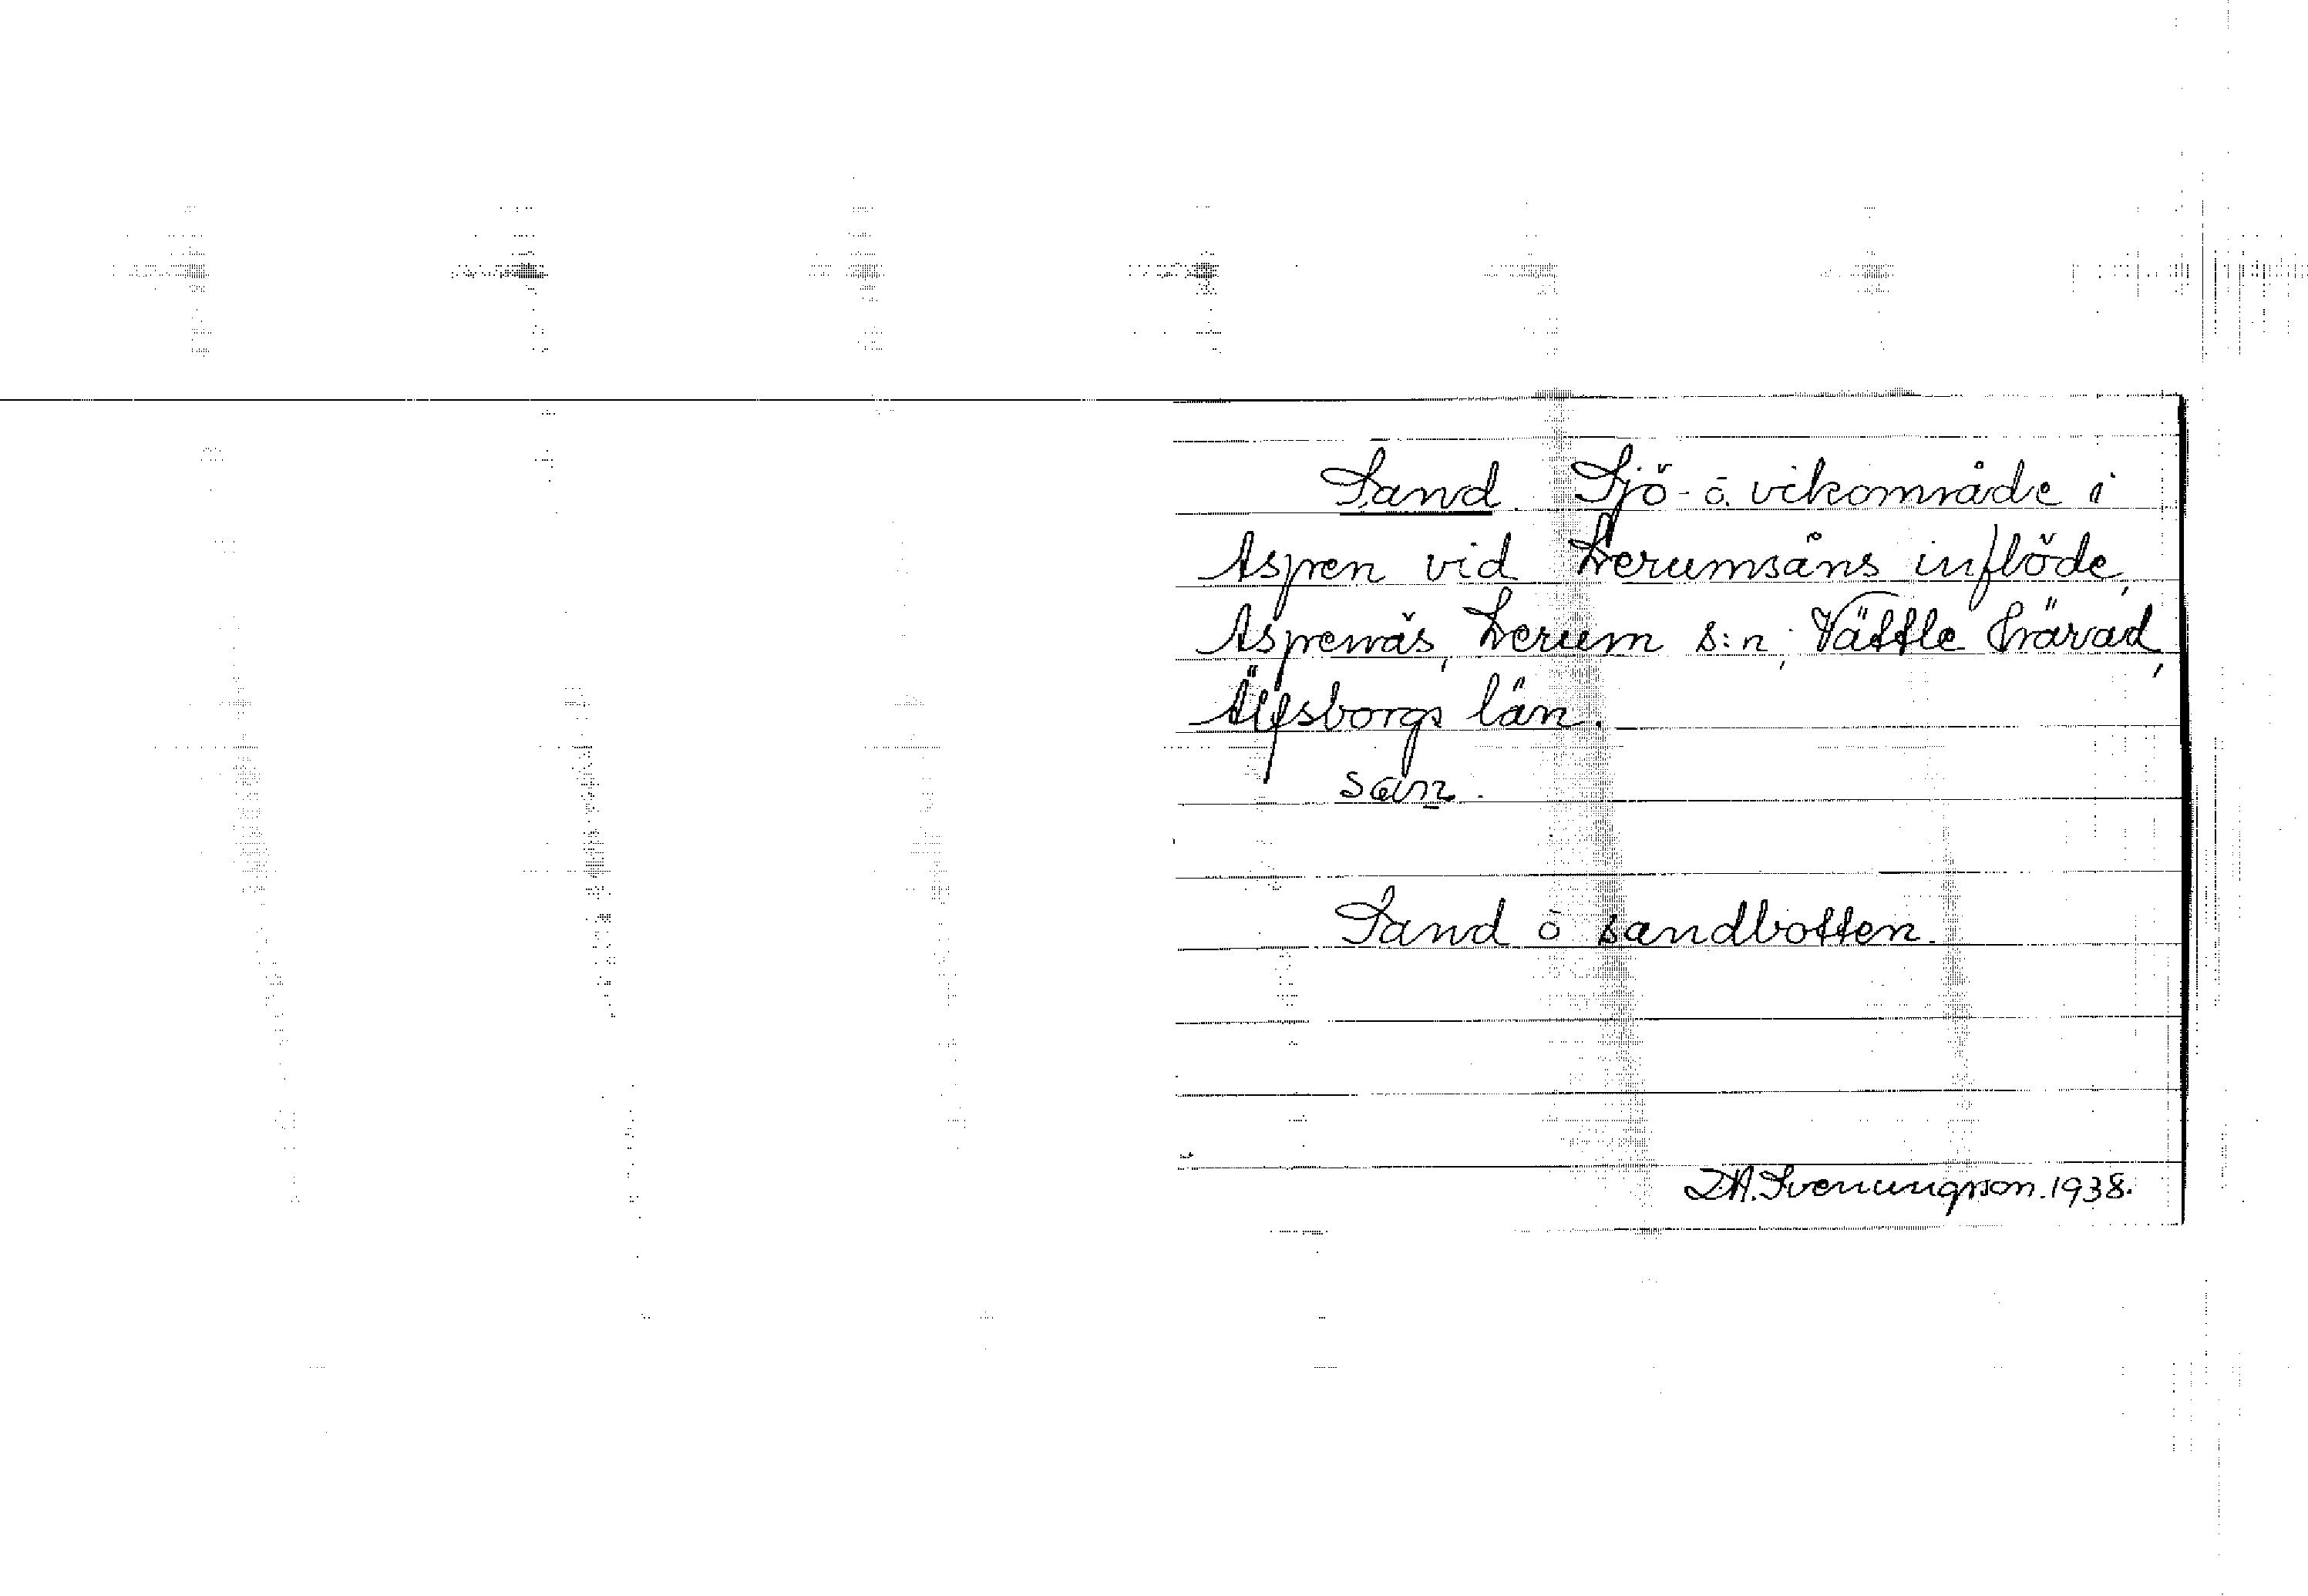 Sand. Sjö- ō. vikområde i
Aspen vid Lerumsåns inflöde,
Aspenäs, Lerum s:n, Vättle härad,
Älfsborgs län.
Sand ō sandbotten.
D.A. Svenungsson. 1938.